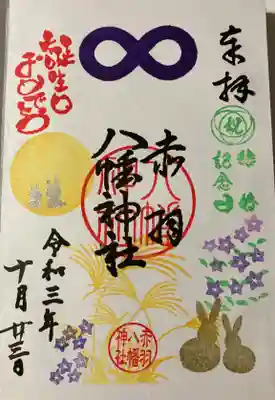 奉拝
祝
結婚
記念日
赤羽
八幡神社
八幡
赤羽
八幡
神社
誕生日
おめでとう
令和三年
十月廿三日